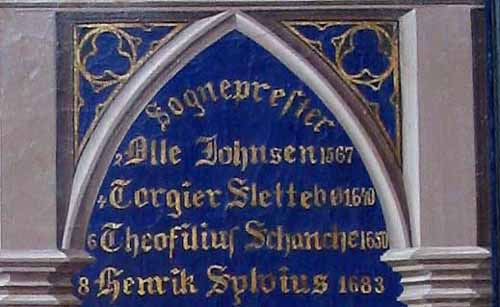 Sogneprester
2 Olle Johnsen 1567
4 Torgier Slettebø 1640
6 Theofilius Schanche 1650
8 Henrik Sylvius 1683